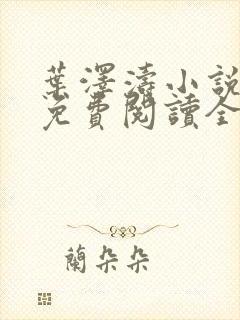 葉澤濤小說
免費閱讀全
蘭朵朵